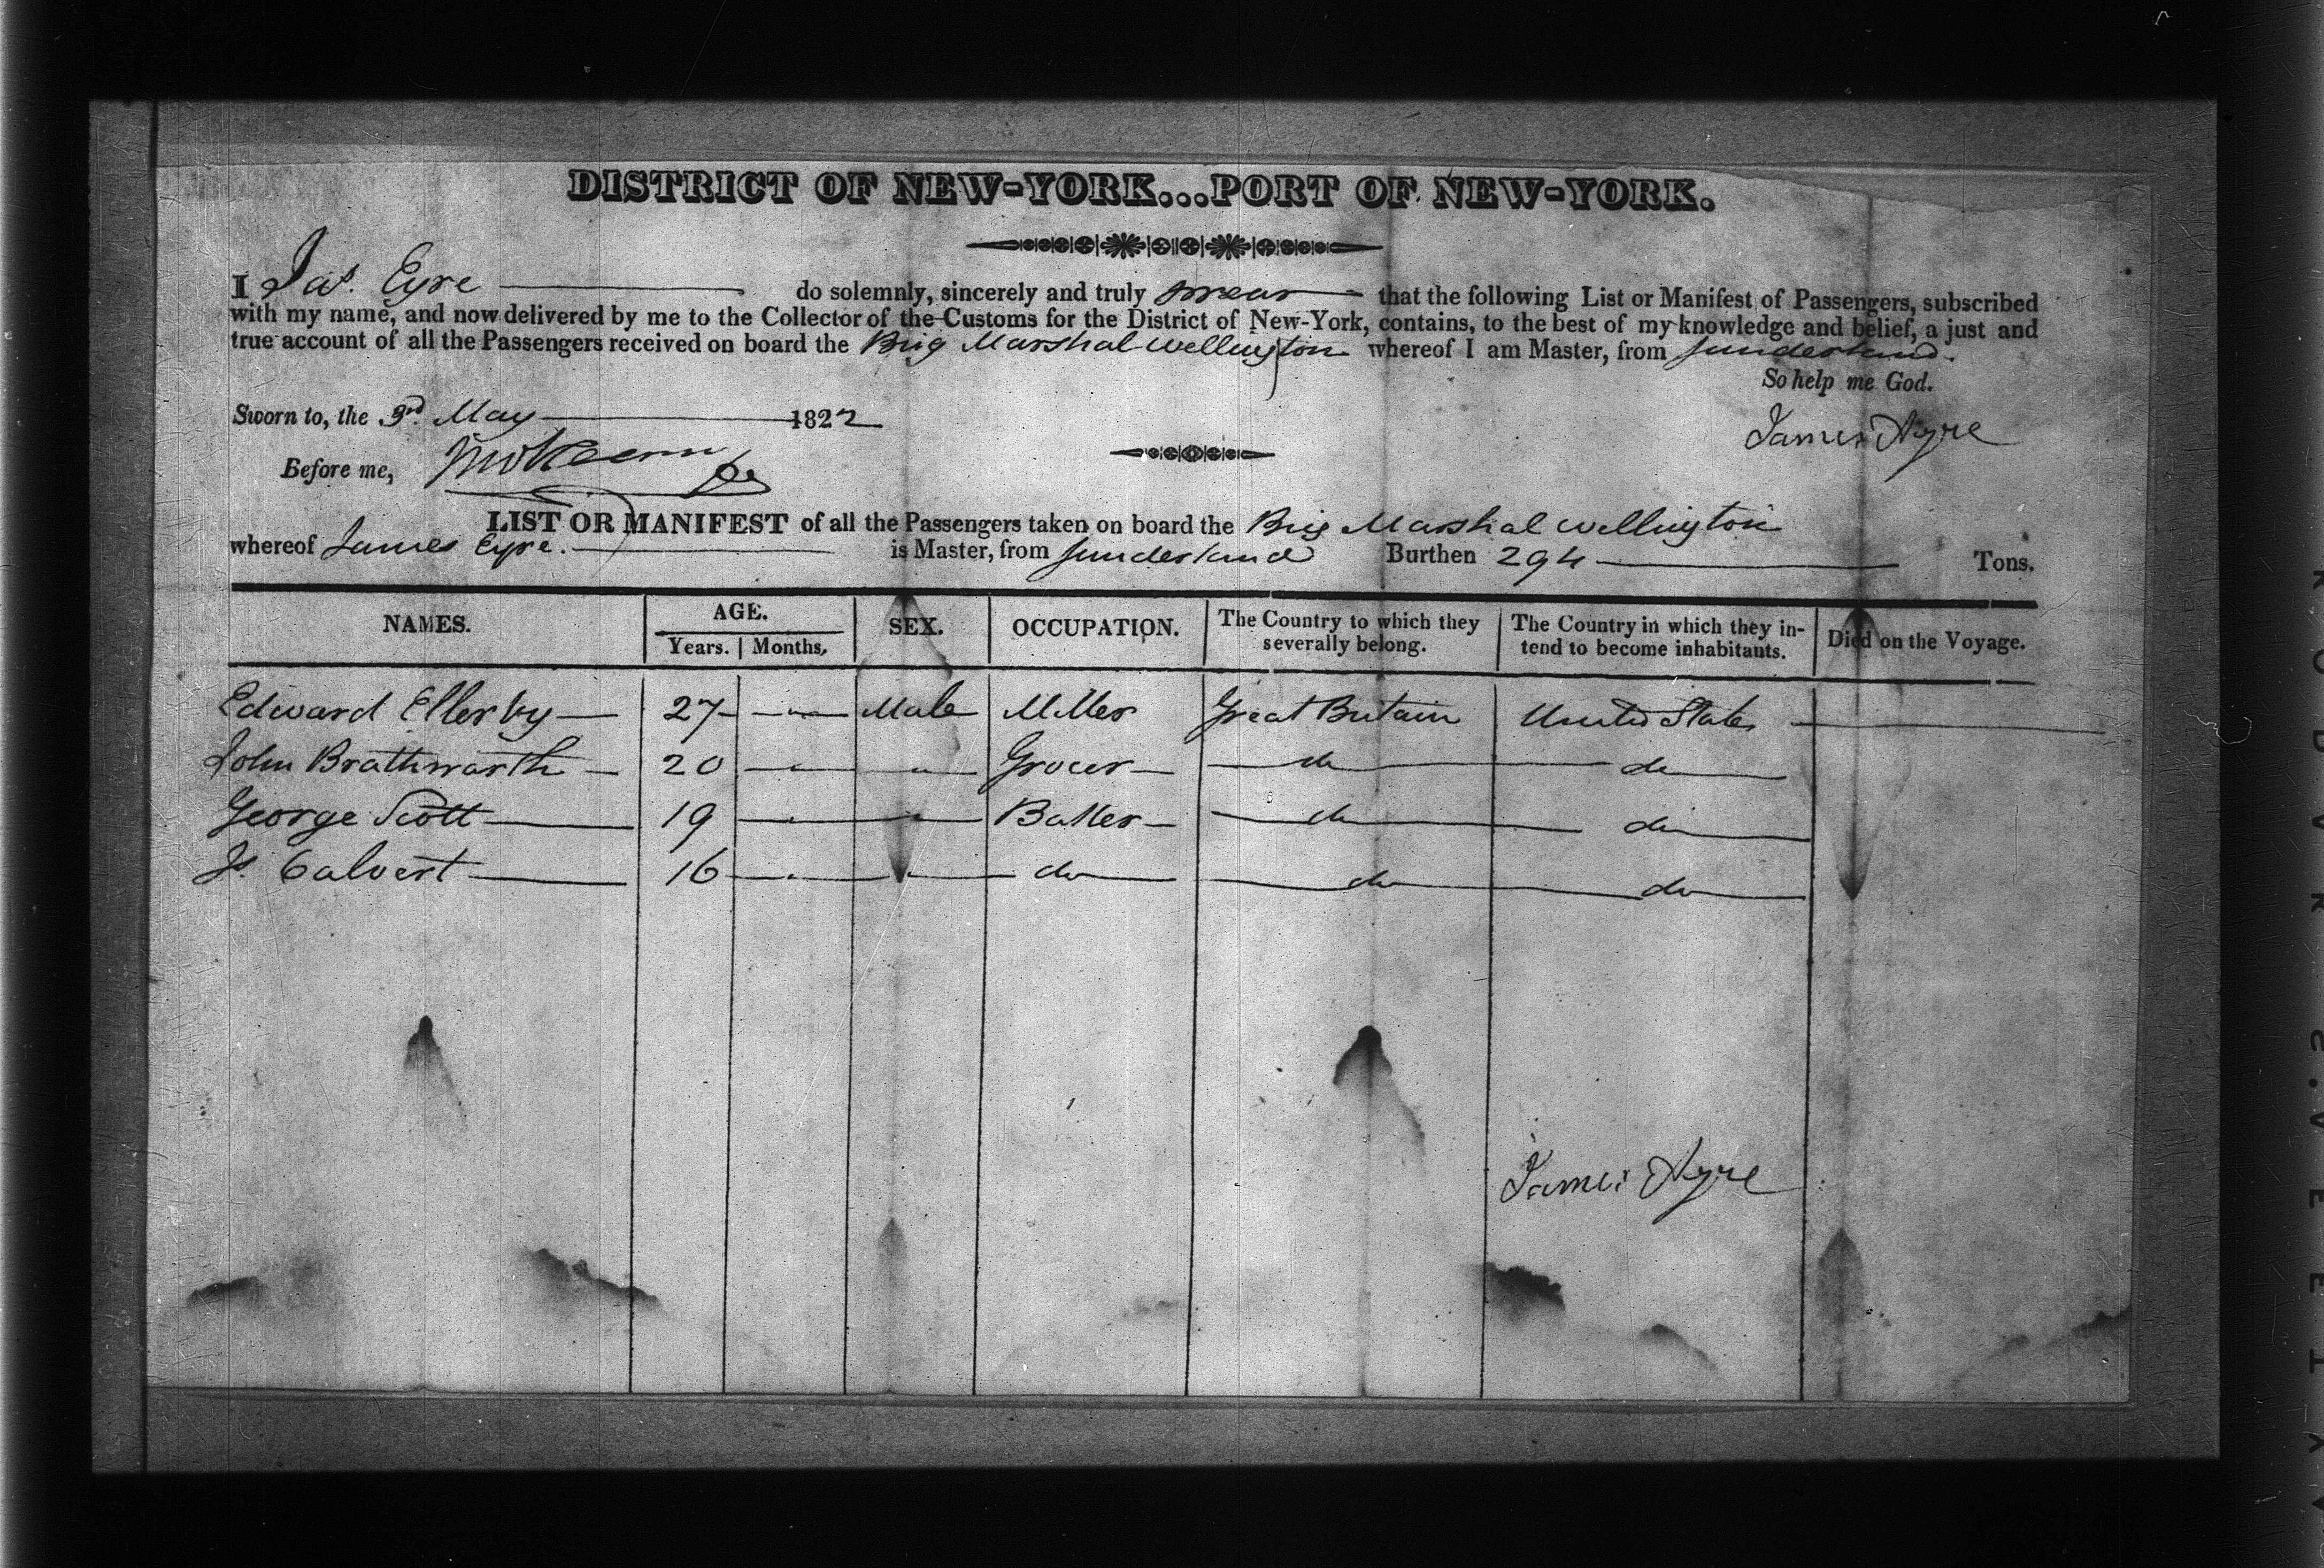 DISTRICT OF NEW-YORK...PORT OF NEW-YORK.
I Jas. Eyre do solemnly, sincerely and truly swear that the following List or Manifest of Passengers, subscribed
with my name, and now delivered by me to the Collector of the Customs for the District of New-York, contains, to the best of my knowledge and belief, a just and
true account of all the Passengers received on board the Brig Marshal Wellington whereof I am Master, from Sunderland.
So help me God.
Sworn to, the 3rd. May 1822
James Ayre
Before me,
LIST OR MANIFEST of all the Passengers taken on board the Brig Marshal Wellington
whereof James Eyre. is Master, from Sunderland Burthen 294 Tons.
NAMES. AGE. SEX. OCCUPATION. The Country to which they severally belong. The Country in which they in-tend to become inhabitants. Died on the Voyage.
Years. Months,
Edward Ellerby 27 Male Miller Great Britain United States
John Brathwarth 20 " Grocer do do
George Scott 19 " Baker do do
Js. Calvert 16 " do do do
James Ayre